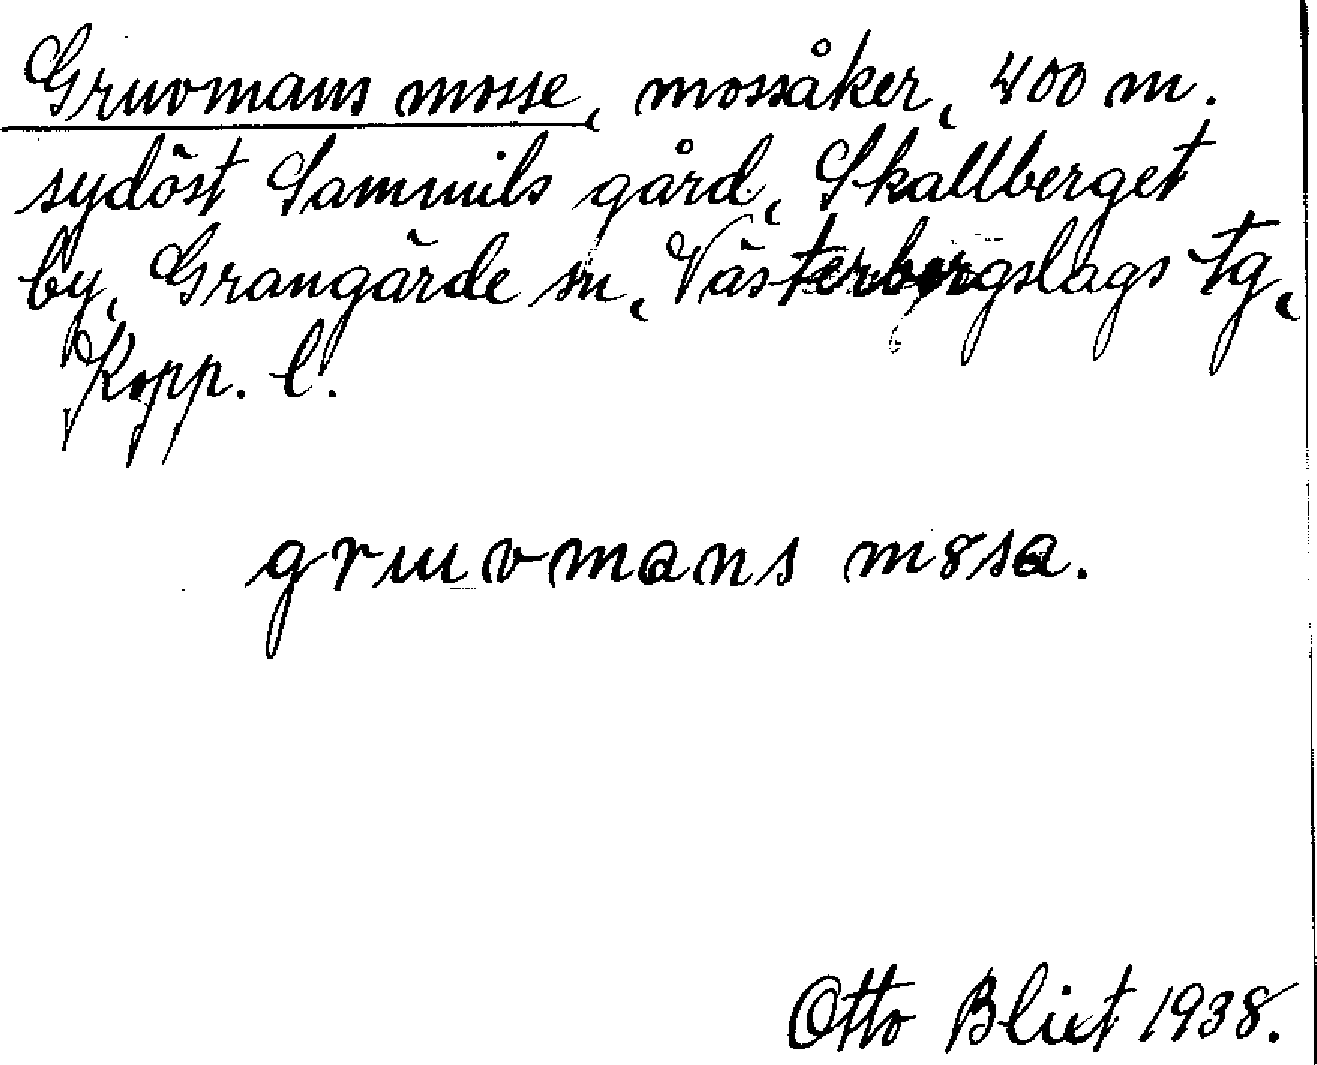 Gruvmans mosse, mossåker, 400 m.
sydöst Sammils gård, Skallberget
by, Grangärde sn, Västerbergslags tg,
Kopp. l.
gruvmans m8sa.
Otto Blixt 1938.